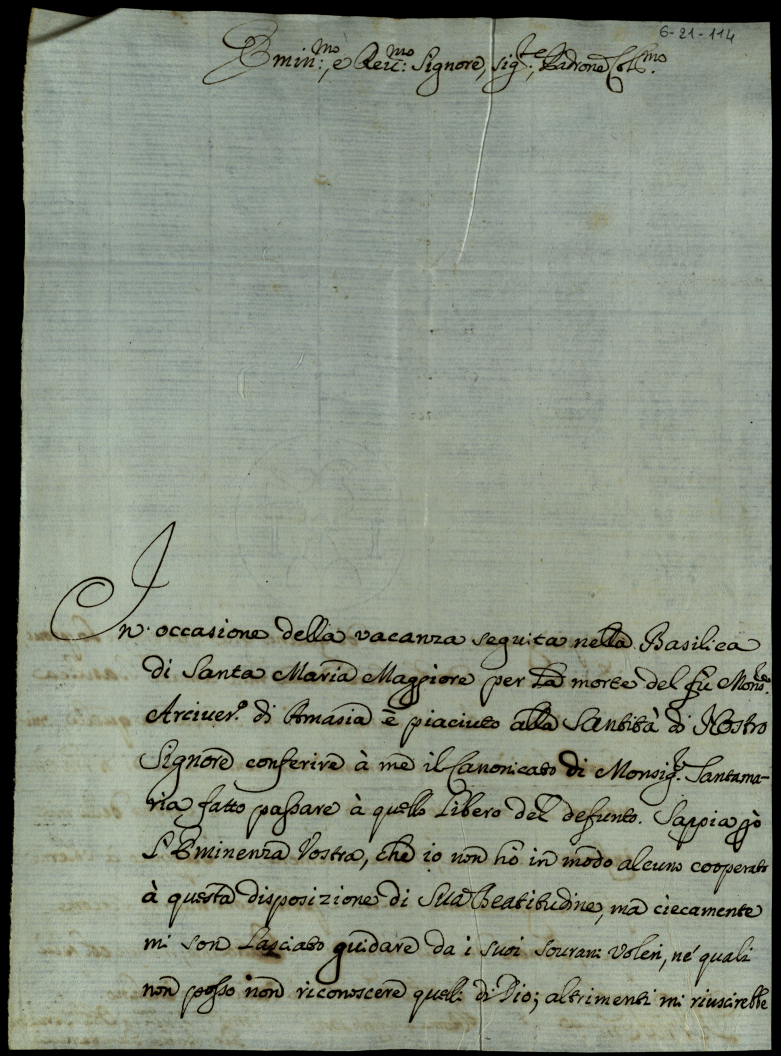 6-21-114
Emin:mo, e Reu:mo Signore, sig:re, Padrone Col:mo
In occasione della vacanza seguita nella Basilica
di Santa Maria Maggiore per la morte del fù Mons:re
Arciuer.o di Amasia è piaciuto alla Santità di Nostro
Signore conferire à me il Canonicato di Monsig.r Santama-
ria fatto passare à quello libero del defunto. Sappia però
l'Eminenza Vostra, che io non hò in modo alcuno cooperato
à questa disposizione di Sua Beatitudine, ma ciecamente
mi son lasciato guidare da i suoi sourani voleri, ne' quali
non posso non riconoscere quelli di Dio; altrimenti mi riuscirebbe